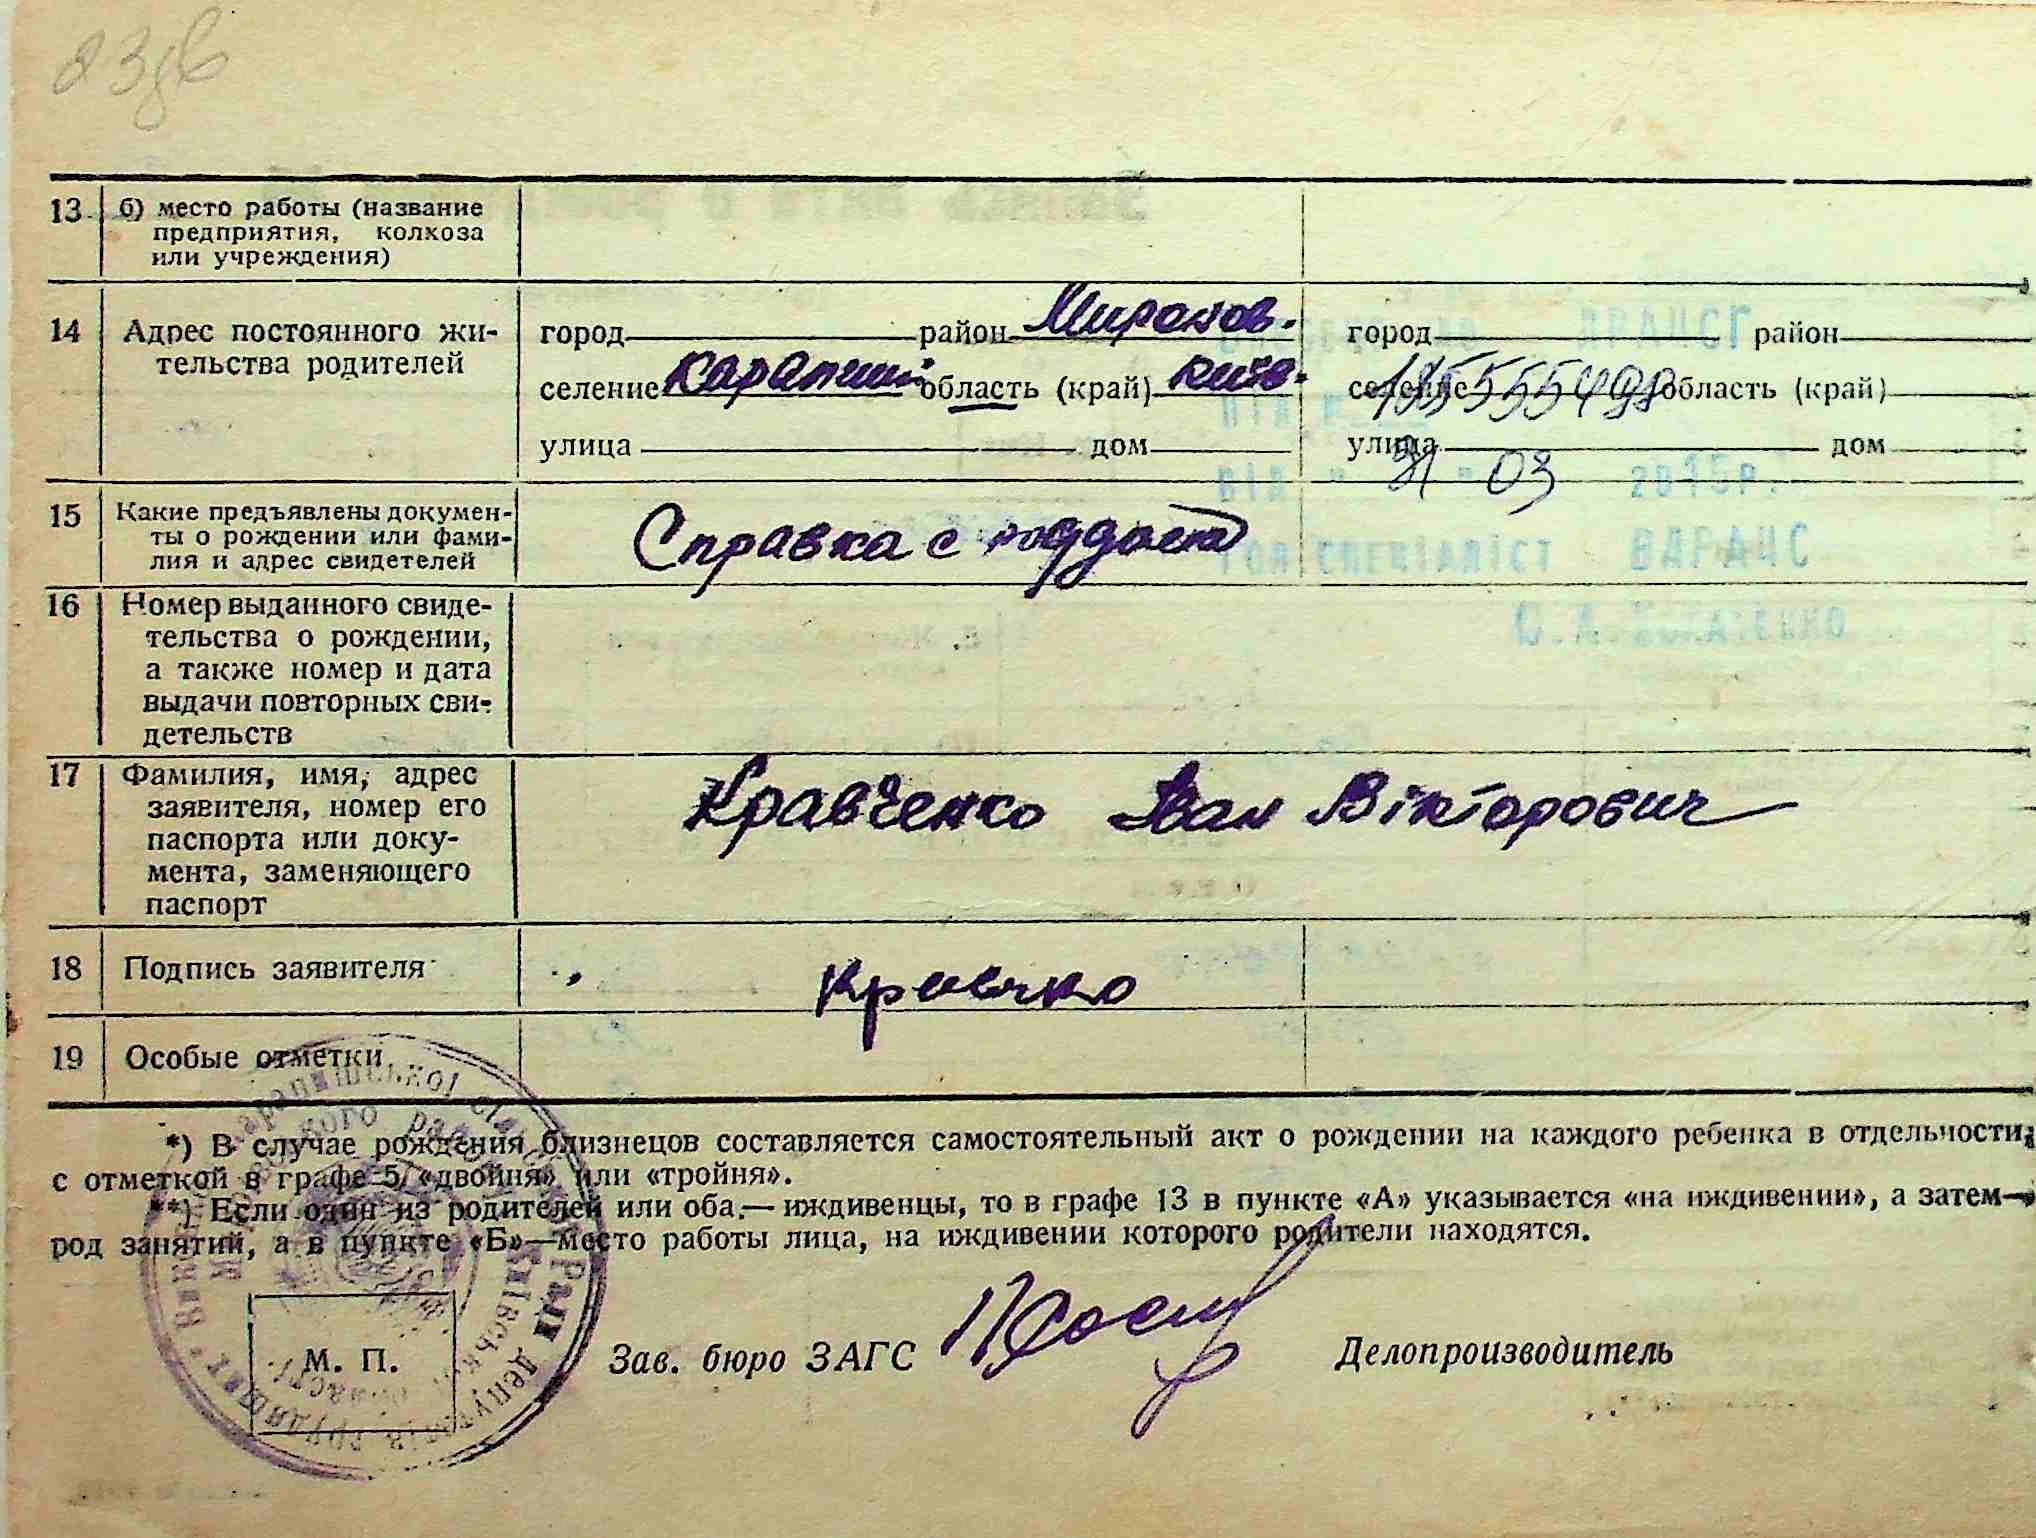 23дв
13 б) место работы (название
предприятия, колхоза
или учреждения)
14 Адрес постоянного жи-
тельства родителей
город район Миронов. город район
селение Карапиши область (край) Київ. селение область (край)
улица дом улица дом
31 03 2015р.
15 Какие предъявлены докумен-
ты о рождении или фами-
лия и адрес свидетелей
Справка с роддома
ВДРАЦС
16 Номер выданного свиде-
тельства о рождении,
а также номер и дата
выдачи повторных сви-
детельств
17 Фамилия, имя, адрес
заявителя, номер его
паспорта или доку-
мента, заменяющего
паспорт
Кравченко Іван Вікторович
18 Подпись заявителя
19 Особые отметки
*) В случае рождения близнецов составляется самостоятельный акт о рождении на каждого ребенка в отдельности
с отметкой в графе 5 «двойня» или «тройня».
**) Если один из родителей или оба — иждивенцы, то в графе 13 в пункте «А» указывается «на иждивении», а затем—
род занятий, а в пункте «Б»—место работы лица, на иждивении которого родители находятся.
М. П. Зав. бюро ЗАГС Делопроизводитель